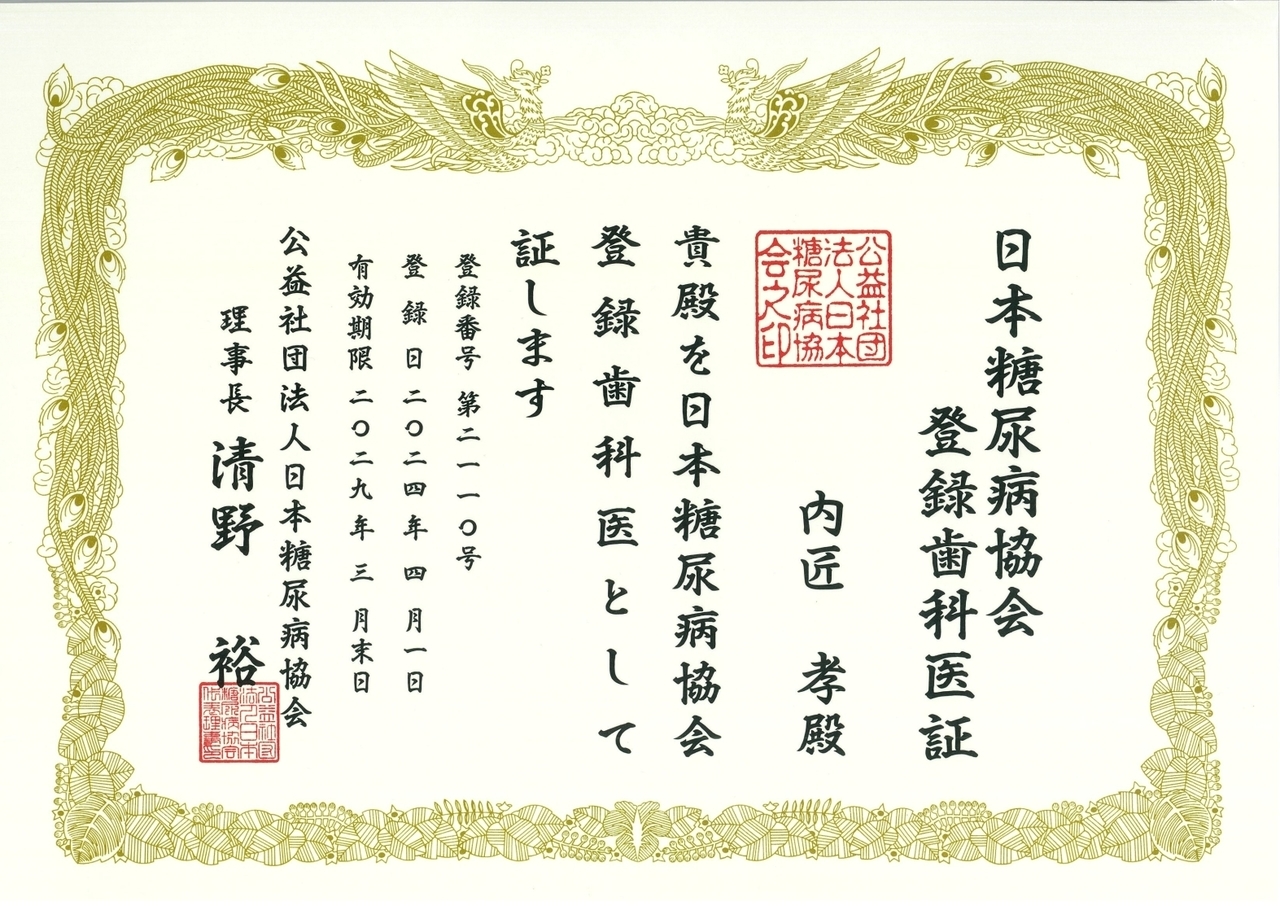 日本糖尿病協会
登録歯科医証
公益社団
法人日本
糖尿病協
会之印
内匠 孝殿
貴殿を日本糖尿病協会
登録歯科医として
証します
登録番号 第二一一〇号
登録日 二〇二四年 四月一日
有効期限 二〇二九年 三月末日
公益社団法人日本糖尿病協会
理事長 清野 裕
公益社団
法人日本
糖尿病協会
代表理事之印